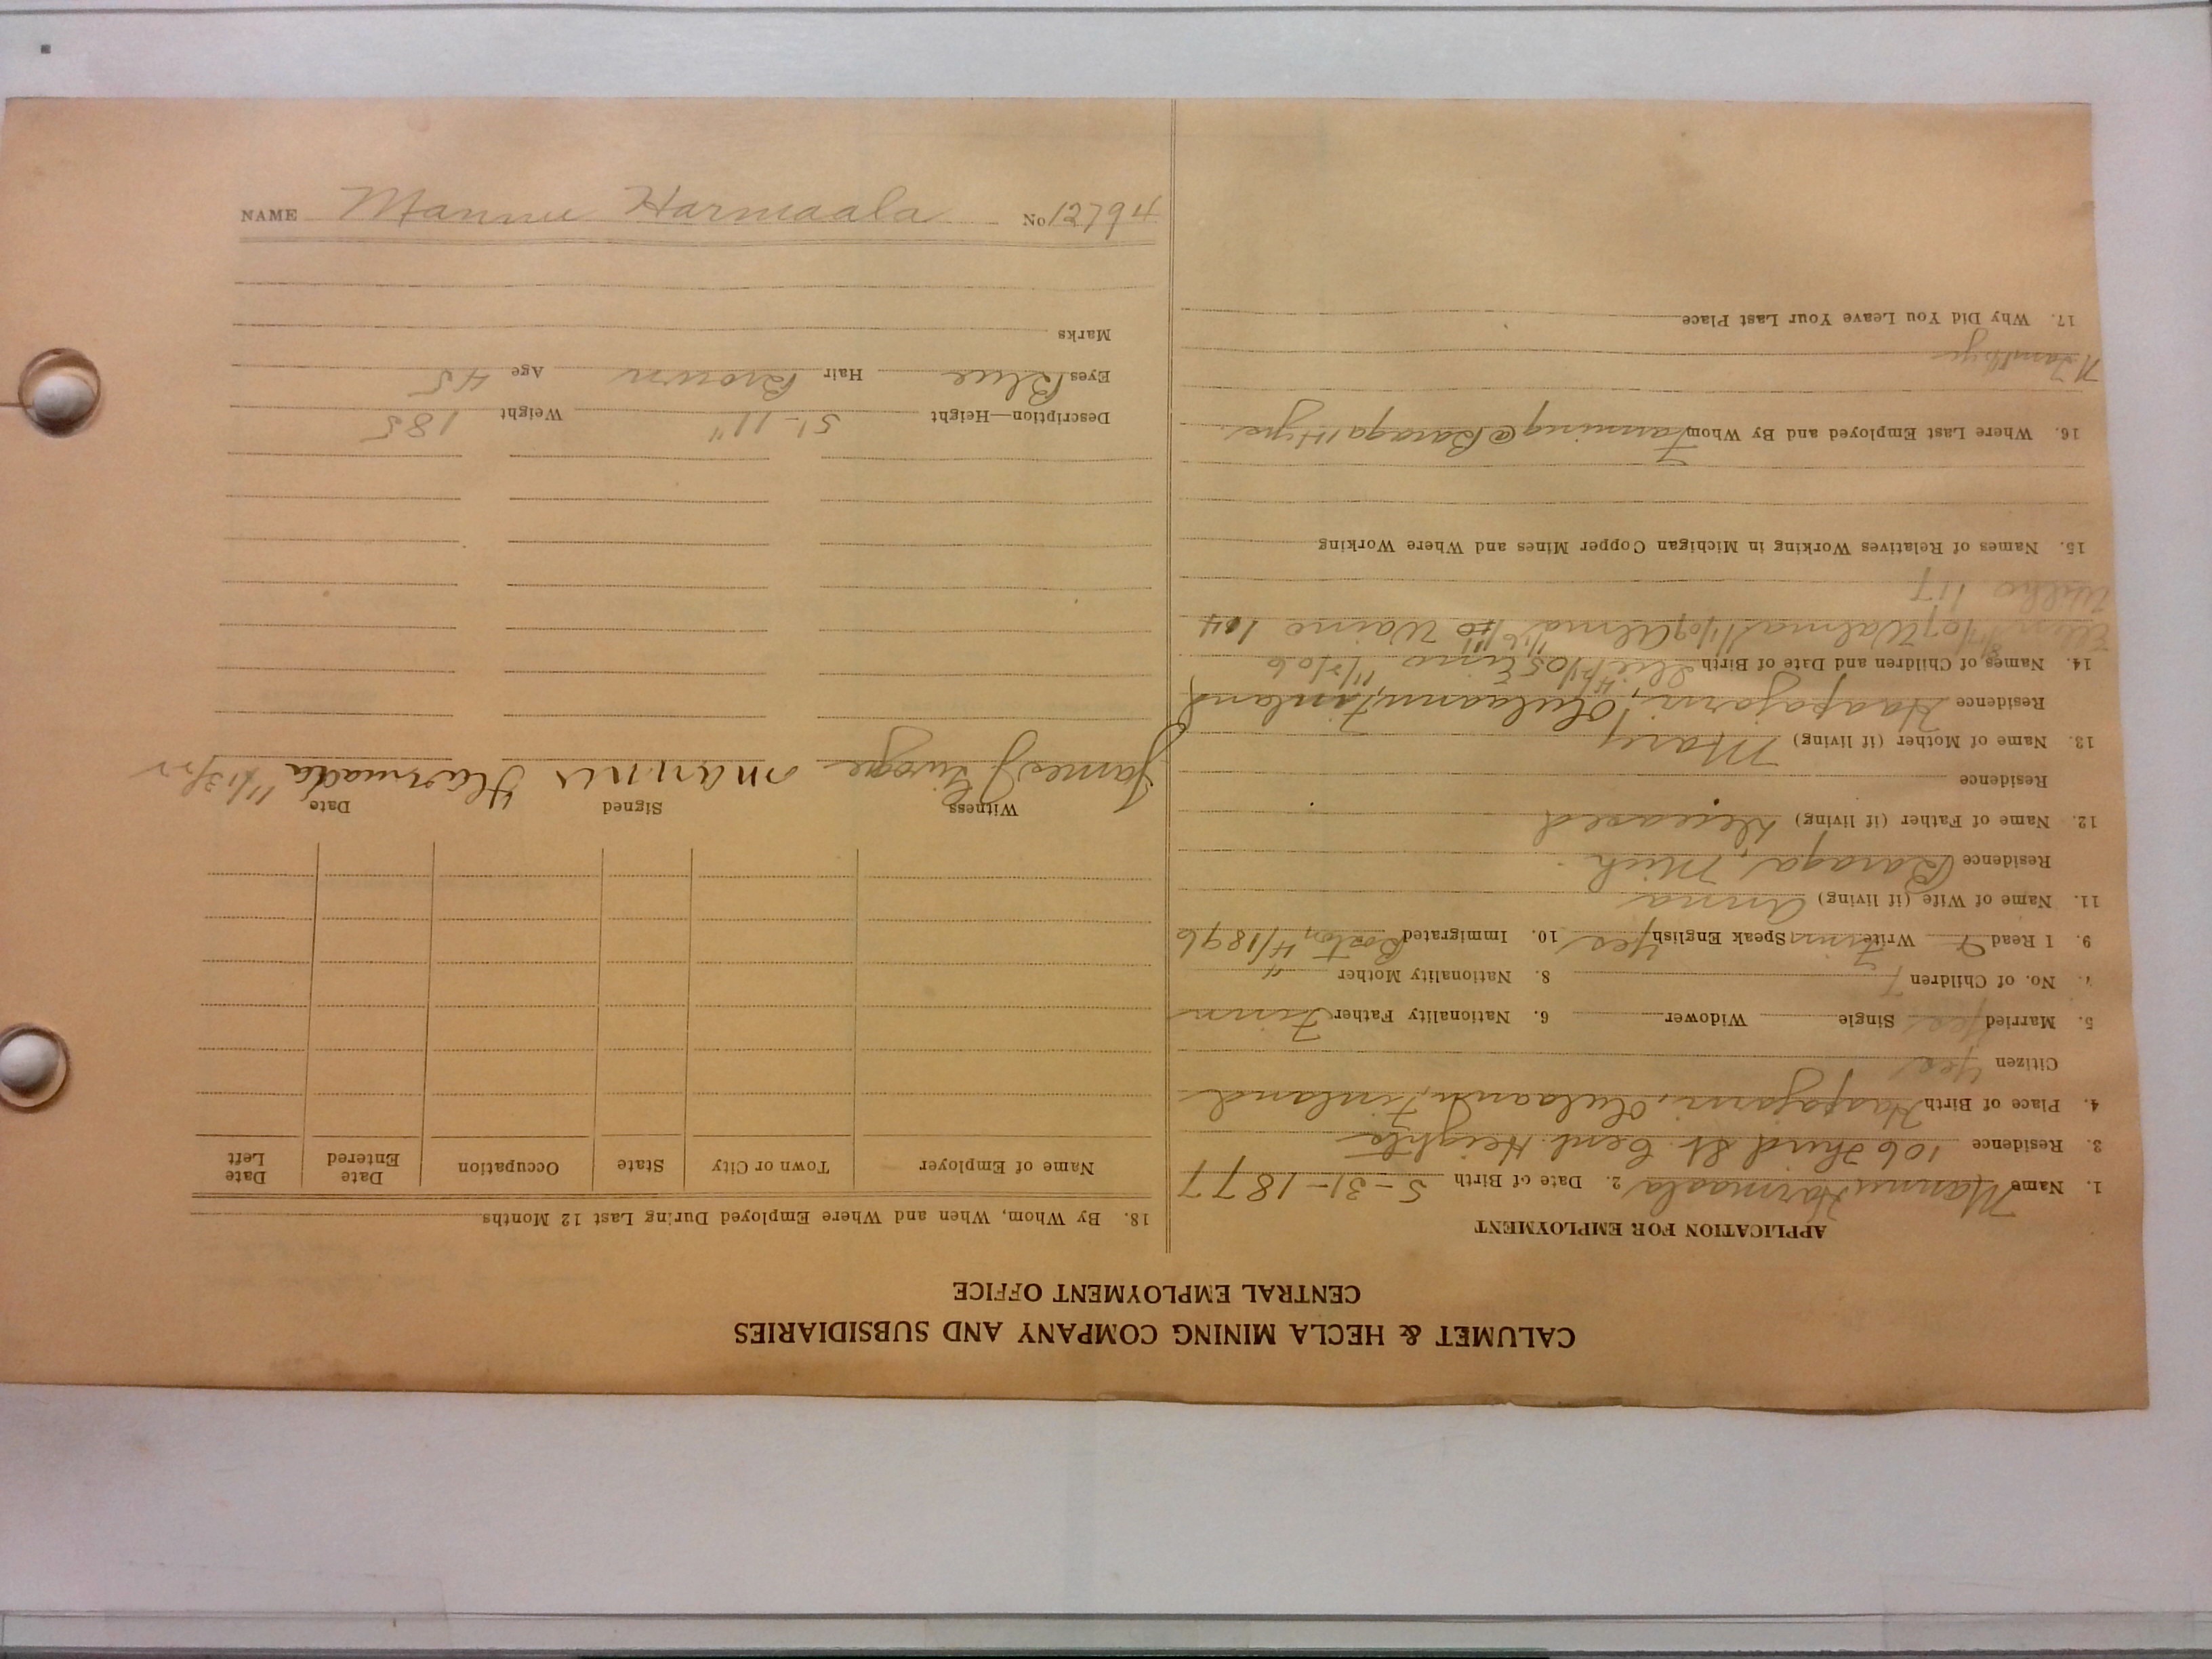 CALUMET & HECLA MINING COMPANY AND SUBSIDIARIES
CENTRAL EMPLOYMENT OFFICE
APPLICATION FOR EMPLOYMENT
1. Name Mannu Harmaala 2. Date of Birth 5-31-1877
3. Residence 106 Third St. Cent. Heights
4. Place of Birth Haapajarvi, Oulaani, Finland
Citizen Yes
5. Married Yes Single Widower 6. Nationality Father Finn
7. No. of Children 7 8. Nationality Mother "
9. I Read & Write Finn Speak English Yes 10. Immigrated Boston 4/1896
11. Name of Wife (if living) Anna
Residence Baraga, Mich.
12. Name of Father (if living) Deceased
Residence
13. Name of Mother (if living) Mary
Residence Haapajarvi, Oulaani, Finland
14. Names of Children and Date of Birth Eino 11/2/06
Walma Alma Waino
15. Names of Relatives Working in Michigan Copper Mines and Where Working
16. Where Last Employed and By Whom Farming @ Baraga 14 yrs.
17. Why Did You Leave Your Last Place
18. By Whom, When and Where Employed During Last 12 Months
Name of Employer Town or City State Occupation Date Entered Date Left
Witness Signed Date
James J. Mannu Harmaala 11/13/22
Description—Height 5'-11" Weight 185
Eyes Blue Hair Brown Age 45
Marks
NAME Mannu Harmaala No 12794